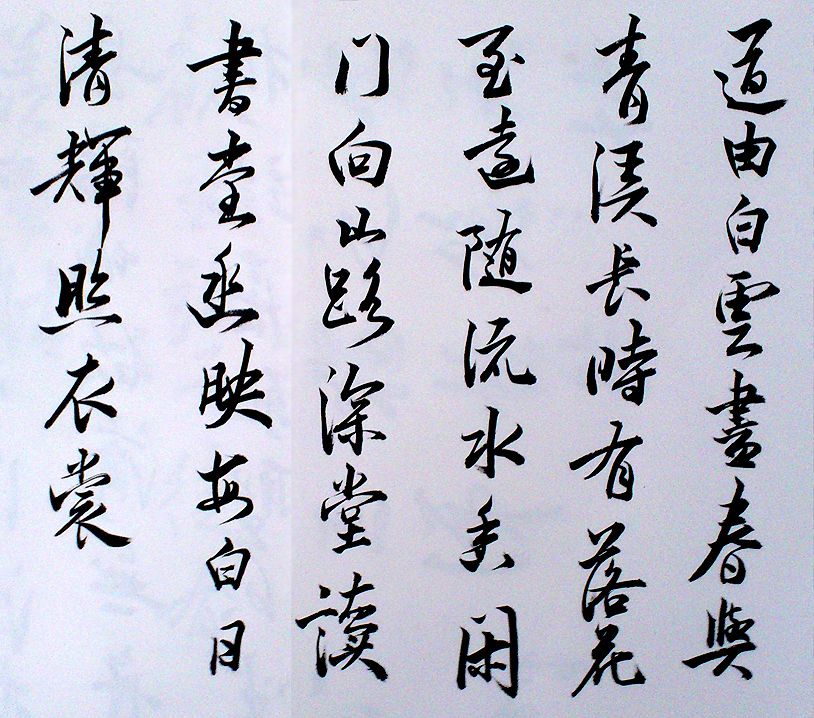 道由白雲盡春與
青溪長時有落花
至遠随流水香闲
门向山路深堂讀
書堂幽映每白日
清輝照衣裳